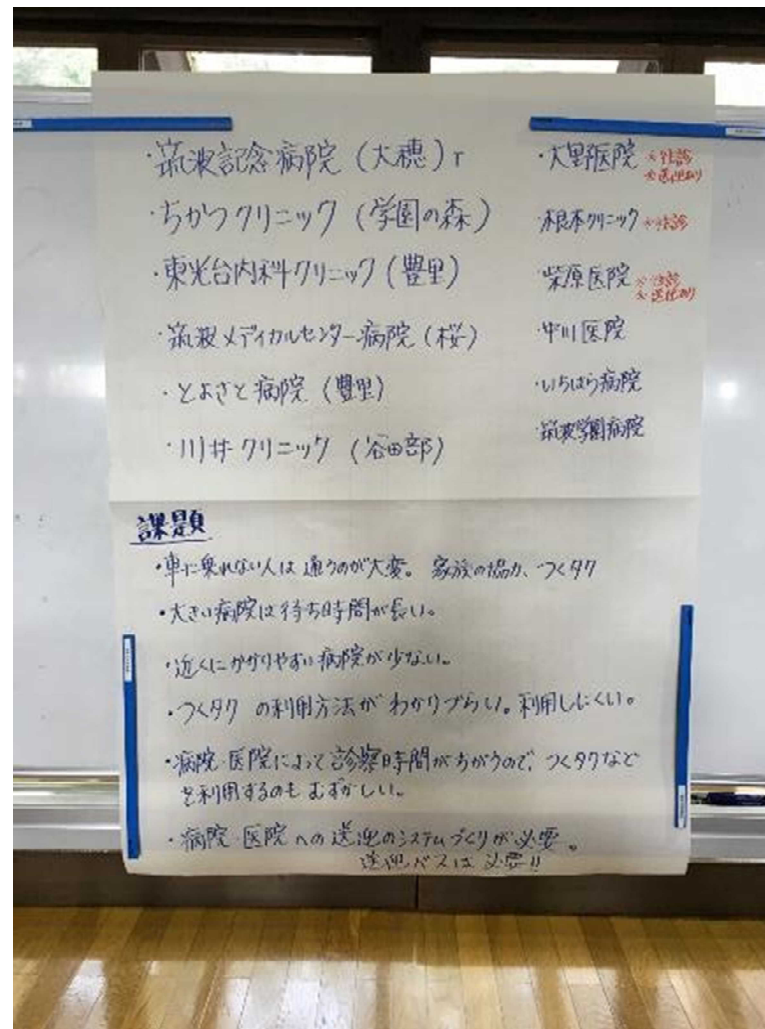 ・筑波記念病院（大穂）r
・ちかつクリニック（学園の森）
・東光台内科クリニック（豊里）
・筑波メディカルセンター病院（桜）
・とよさと病院（豊里）
・川井クリニック（谷田部）
・大野医院 ☆往診
☆送迎あり
・根本クリニック ☆往診
・柴原医院 ☆往診
☆送迎あり
・中川医院
・いちはら病院
・筑波学園病院
課題
・車に乗れない人は通うのが大変。家族の協力、つくタク
・大きい病院は待ち時間が長い。
・近くにかかりやすい病院が少ない。
・つくタクの利用方法がわかりづらい。利用しにくい。
・病院・医院によって診察時間がちがうので、つくタクなど
を利用するのもむずかしい。
・病院・医院への送迎のシステムづくりが必要。
送迎バスは必要!!